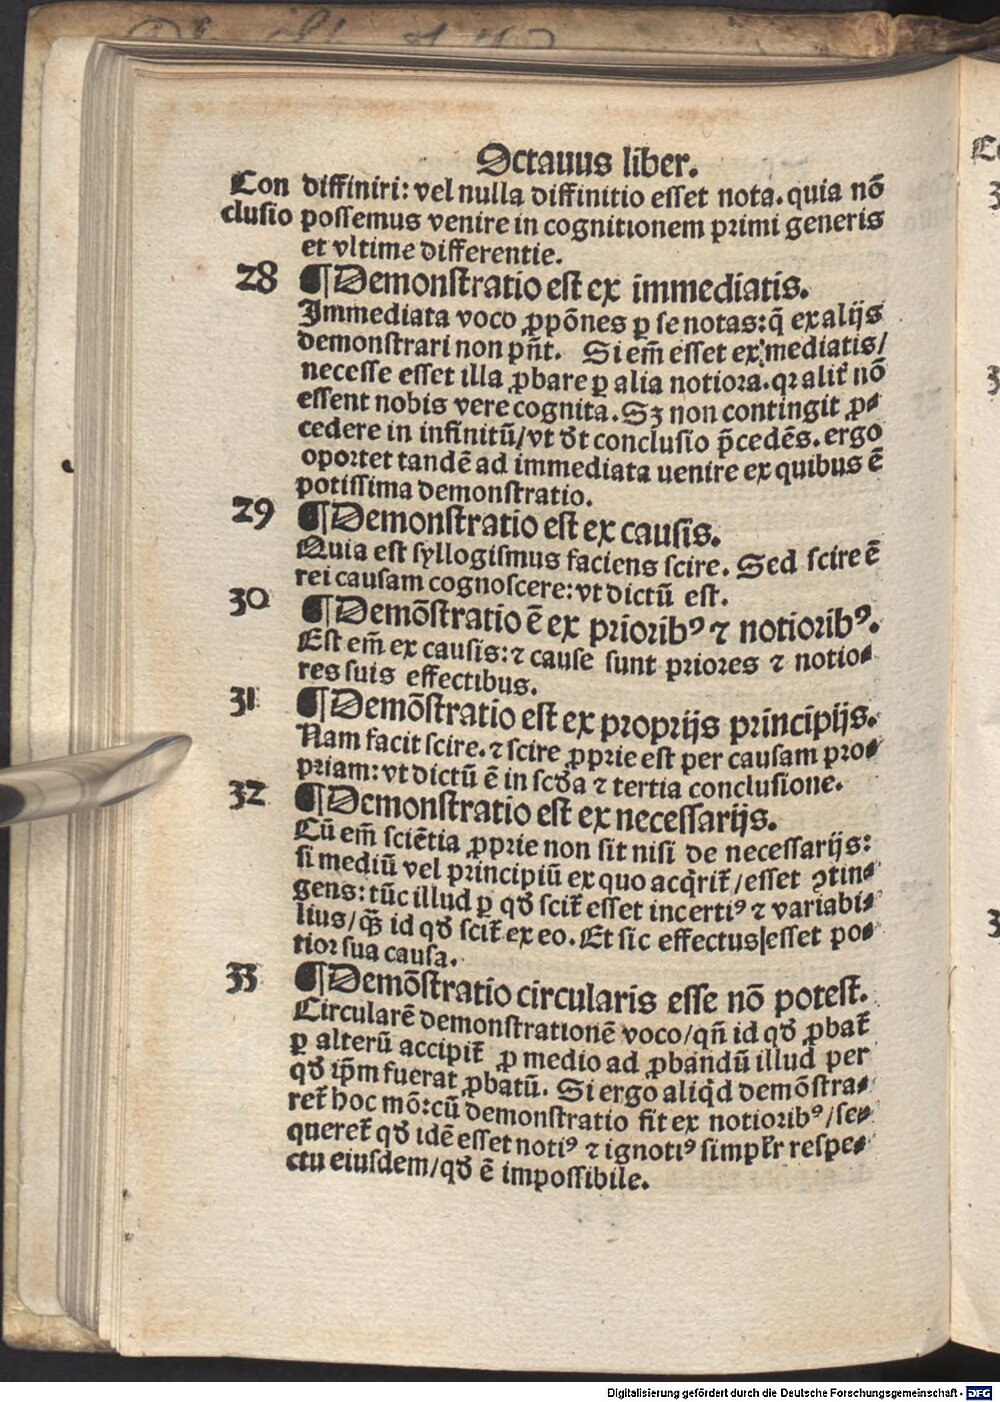 Octauus liber.
Con diffiniri: vel nulla diffinitio esset nota. quia nō
clusio possemus venire in cognitionem primi generis
et vltime differentie.
28 ¶Demonstratio est ex immediatis.
Immediata voco ꝓpōnes ꝑ se notas: q̄ ex alijs
demonstrari non pn̄t. Si em̄ esset ex mediatis/
necesse esset illa ꝓbare ꝑ alia notiora. qꝛ alit̄ nō
essent nobis vere cognita. Sꝫ non contingit ꝓ⸗
cedere in infinitū/ vt dt conclusio p̄cedēs. ergo
oportet tandē ad immediata uenire ex quibus ē
potissima demonstratio.
29 ¶Demonstratio est ex causis.
Quia est syllogismus faciens scire. Sed scire ē
rei causam cognoscere: vt dictū est.
30 ¶Demōstratio ē ex priorib⁹ ⁊ notiorib⁹.
Est em̄ ex causis: ⁊ cause sunt priores ⁊ notio⸗
res suis effectibus.
31 ¶Demōstratio est ex proprijs principijs.
Nam facit scire. ⁊ scire ꝓprie est per causam pro⸗
priam: vt dictū ē in scd̄a ⁊ tertia conclusione.
32 ¶Demonstratio est ex necessarijs.
Cū em̄ sciētia ꝓprie non sit nisi de necessarijs:
si mediū vel principiū ex quo acq̄rit̄/ esset ꝯtin⸗
gens: tūc illud ꝑ qd̄ scit̄ esset incerti⁹ ⁊ variabi⸗
lius/ q̄ꝫ id qd̄ scit̄ ex eo. Et sic effectus esset po⸗
tior sua causa.
33 ¶Demōstratio circularis esse nō potest.
Circularē demonstrationē voco/ qn̄ id qd̄ ꝓbat̄
ꝑ alterū accipit̄ ꝓ medio ad ꝓbandū illud per
qd̄ ip̄m fuerat ꝓbatū. Si ergo aliq̄d demōstra⸗
ret̄ hoc mō: cū demonstratio fit ex notiorib⁹/ se⸗
queret̄ qd̄ idē esset noti⁹ ⁊ ignoti⁹ simpłr respe⸗
ctu eiusdem/ qd̄ ē impossibile.
Digitalisierung gefördert durch die Deutsche Forschungsgemeinschaft - DFG